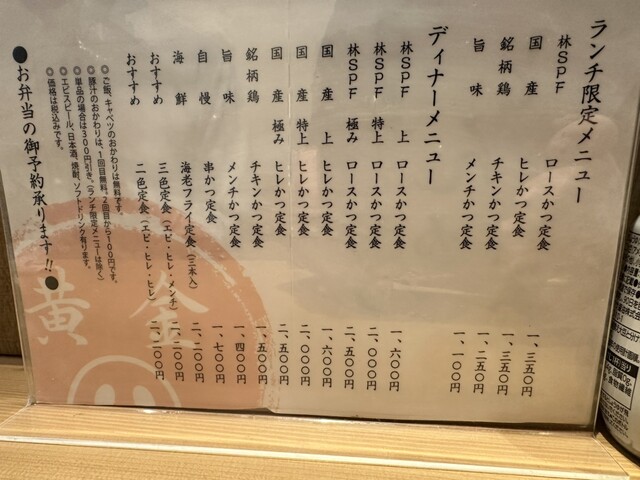 ランチ限定メニュー
林SPF ロースかつ定食 一、三五〇円
国産 ヒレかつ定食 一、三五〇円
銘柄鶏 チキンかつ定食 一、二五〇円
旨味 メンチかつ定食 一、一〇〇円
ディナーメニュー
林SPF 上 ロースかつ定食 一、六〇〇円
林SPF 特上 ロースかつ定食 二、〇〇〇円
林SPF 極み ロースかつ定食 二、五〇〇円
国産 上 ヒレかつ定食 一、六〇〇円
国産 特上 ヒレかつ定食 二、〇〇〇円
国産 極み ヒレかつ定食 二、五〇〇円
銘柄鶏 チキンかつ定食 一、五〇〇円
旨味 メンチかつ定食 一、四〇〇円
自慢 串かつ定食 一、七〇〇円
海鮮 海老フライ定食(三本入) 二、二〇〇円
おすすめ 三色定食(エビ・ヒレ・メンチ) 二、二〇〇円
おすすめ 二色定食(エビ・ヒレ・ヒレ) 二、二〇〇円
◎ご飯、キャベツのおかわりは無料です。
◎豚汁のおかわりは、1回目無料。2回目から100円です。
◎単品の場合は300円引き。(ランチ限定メニューは除く)
◎エビスビール、日本酒、焼酎、ソフトドリンク有ります。
◎価格は税込みです。
●お弁当の御予約承ります!!●
黄金